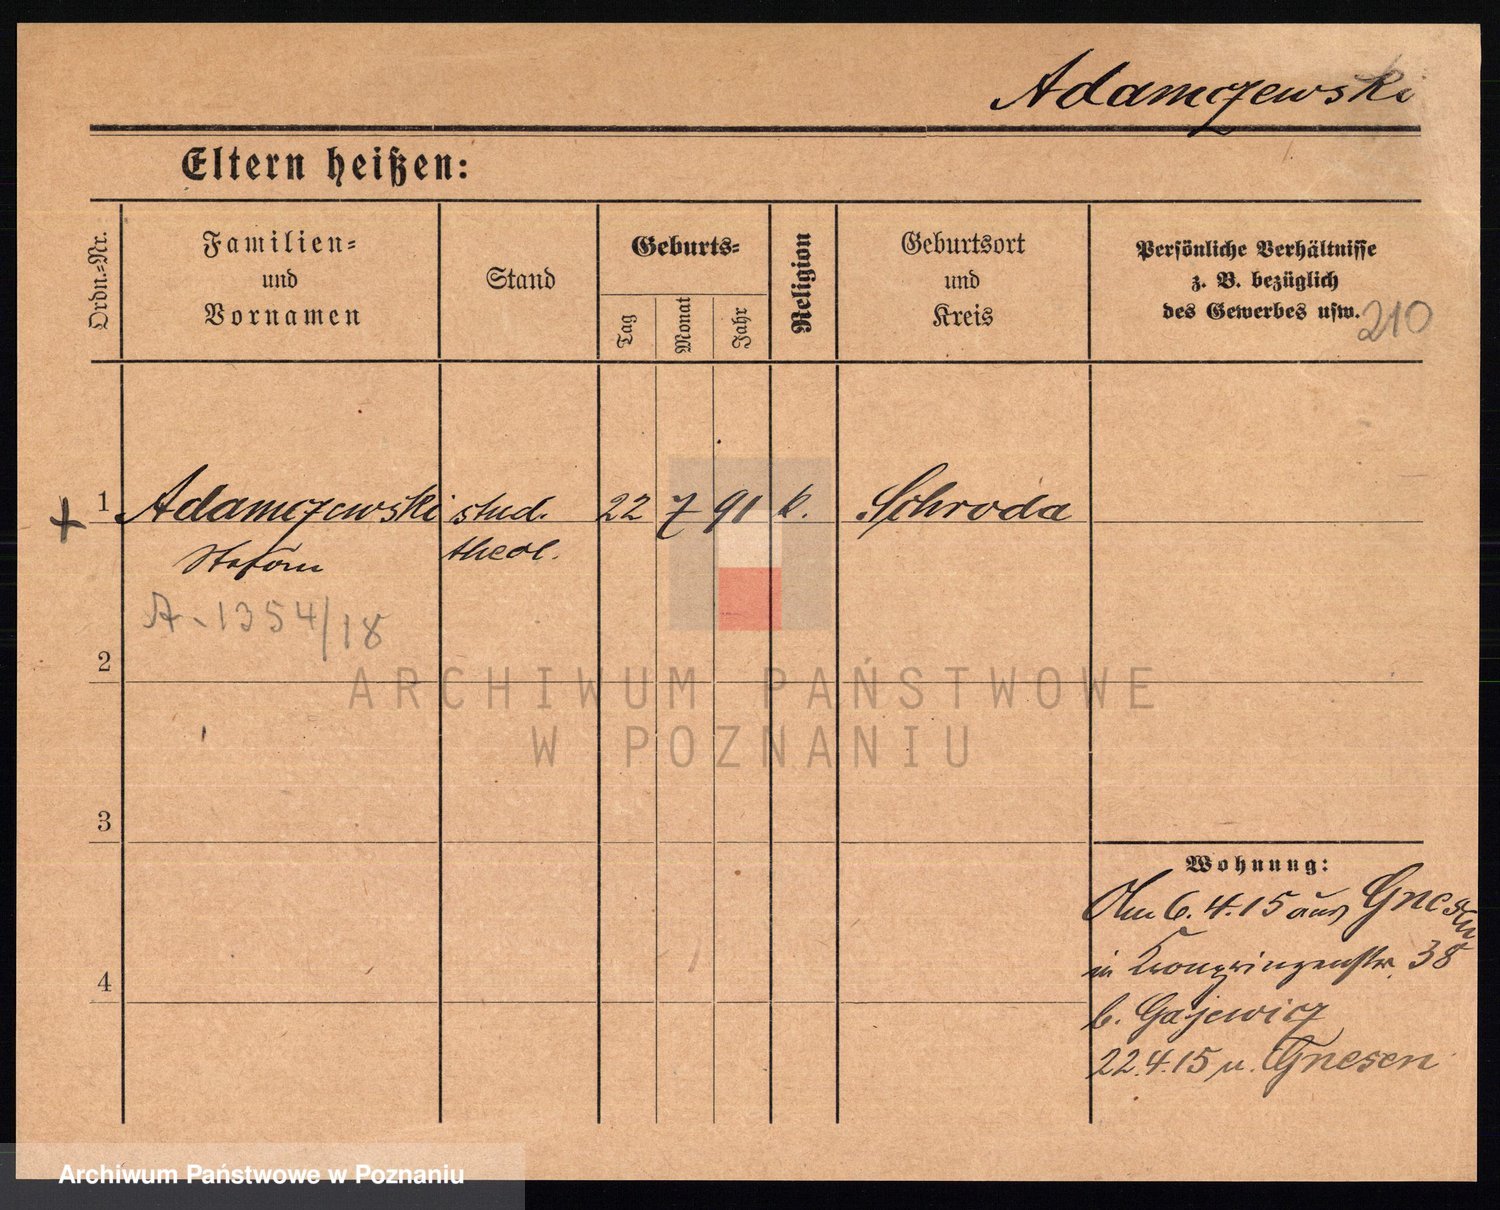 Adamczewski
Eltern heißen:
Ordn.=Nr.
Familien=
und
Vornamen
Stand
Geburts=
Tag
Monat
Jahr
Religion
Geburtsort
und
Kreis
Persönliche Verhältnisse
z. B. bezüglich
des Gewerbes usw.
210
+ 1 Adamczewski stud. 22 7 91 k. Schroda
Stefan theol.
A-1354/18
2
3
4
Wohnung:
Am 6.4.15 aus Gnesen
in Kronprinzenstr. 38
b. Gajewicz
22.4.15 n. Gnesen
ARCHIWUM PAŃSTWOWE
W POZNANIU
Archiwum Państwowe w Poznaniu